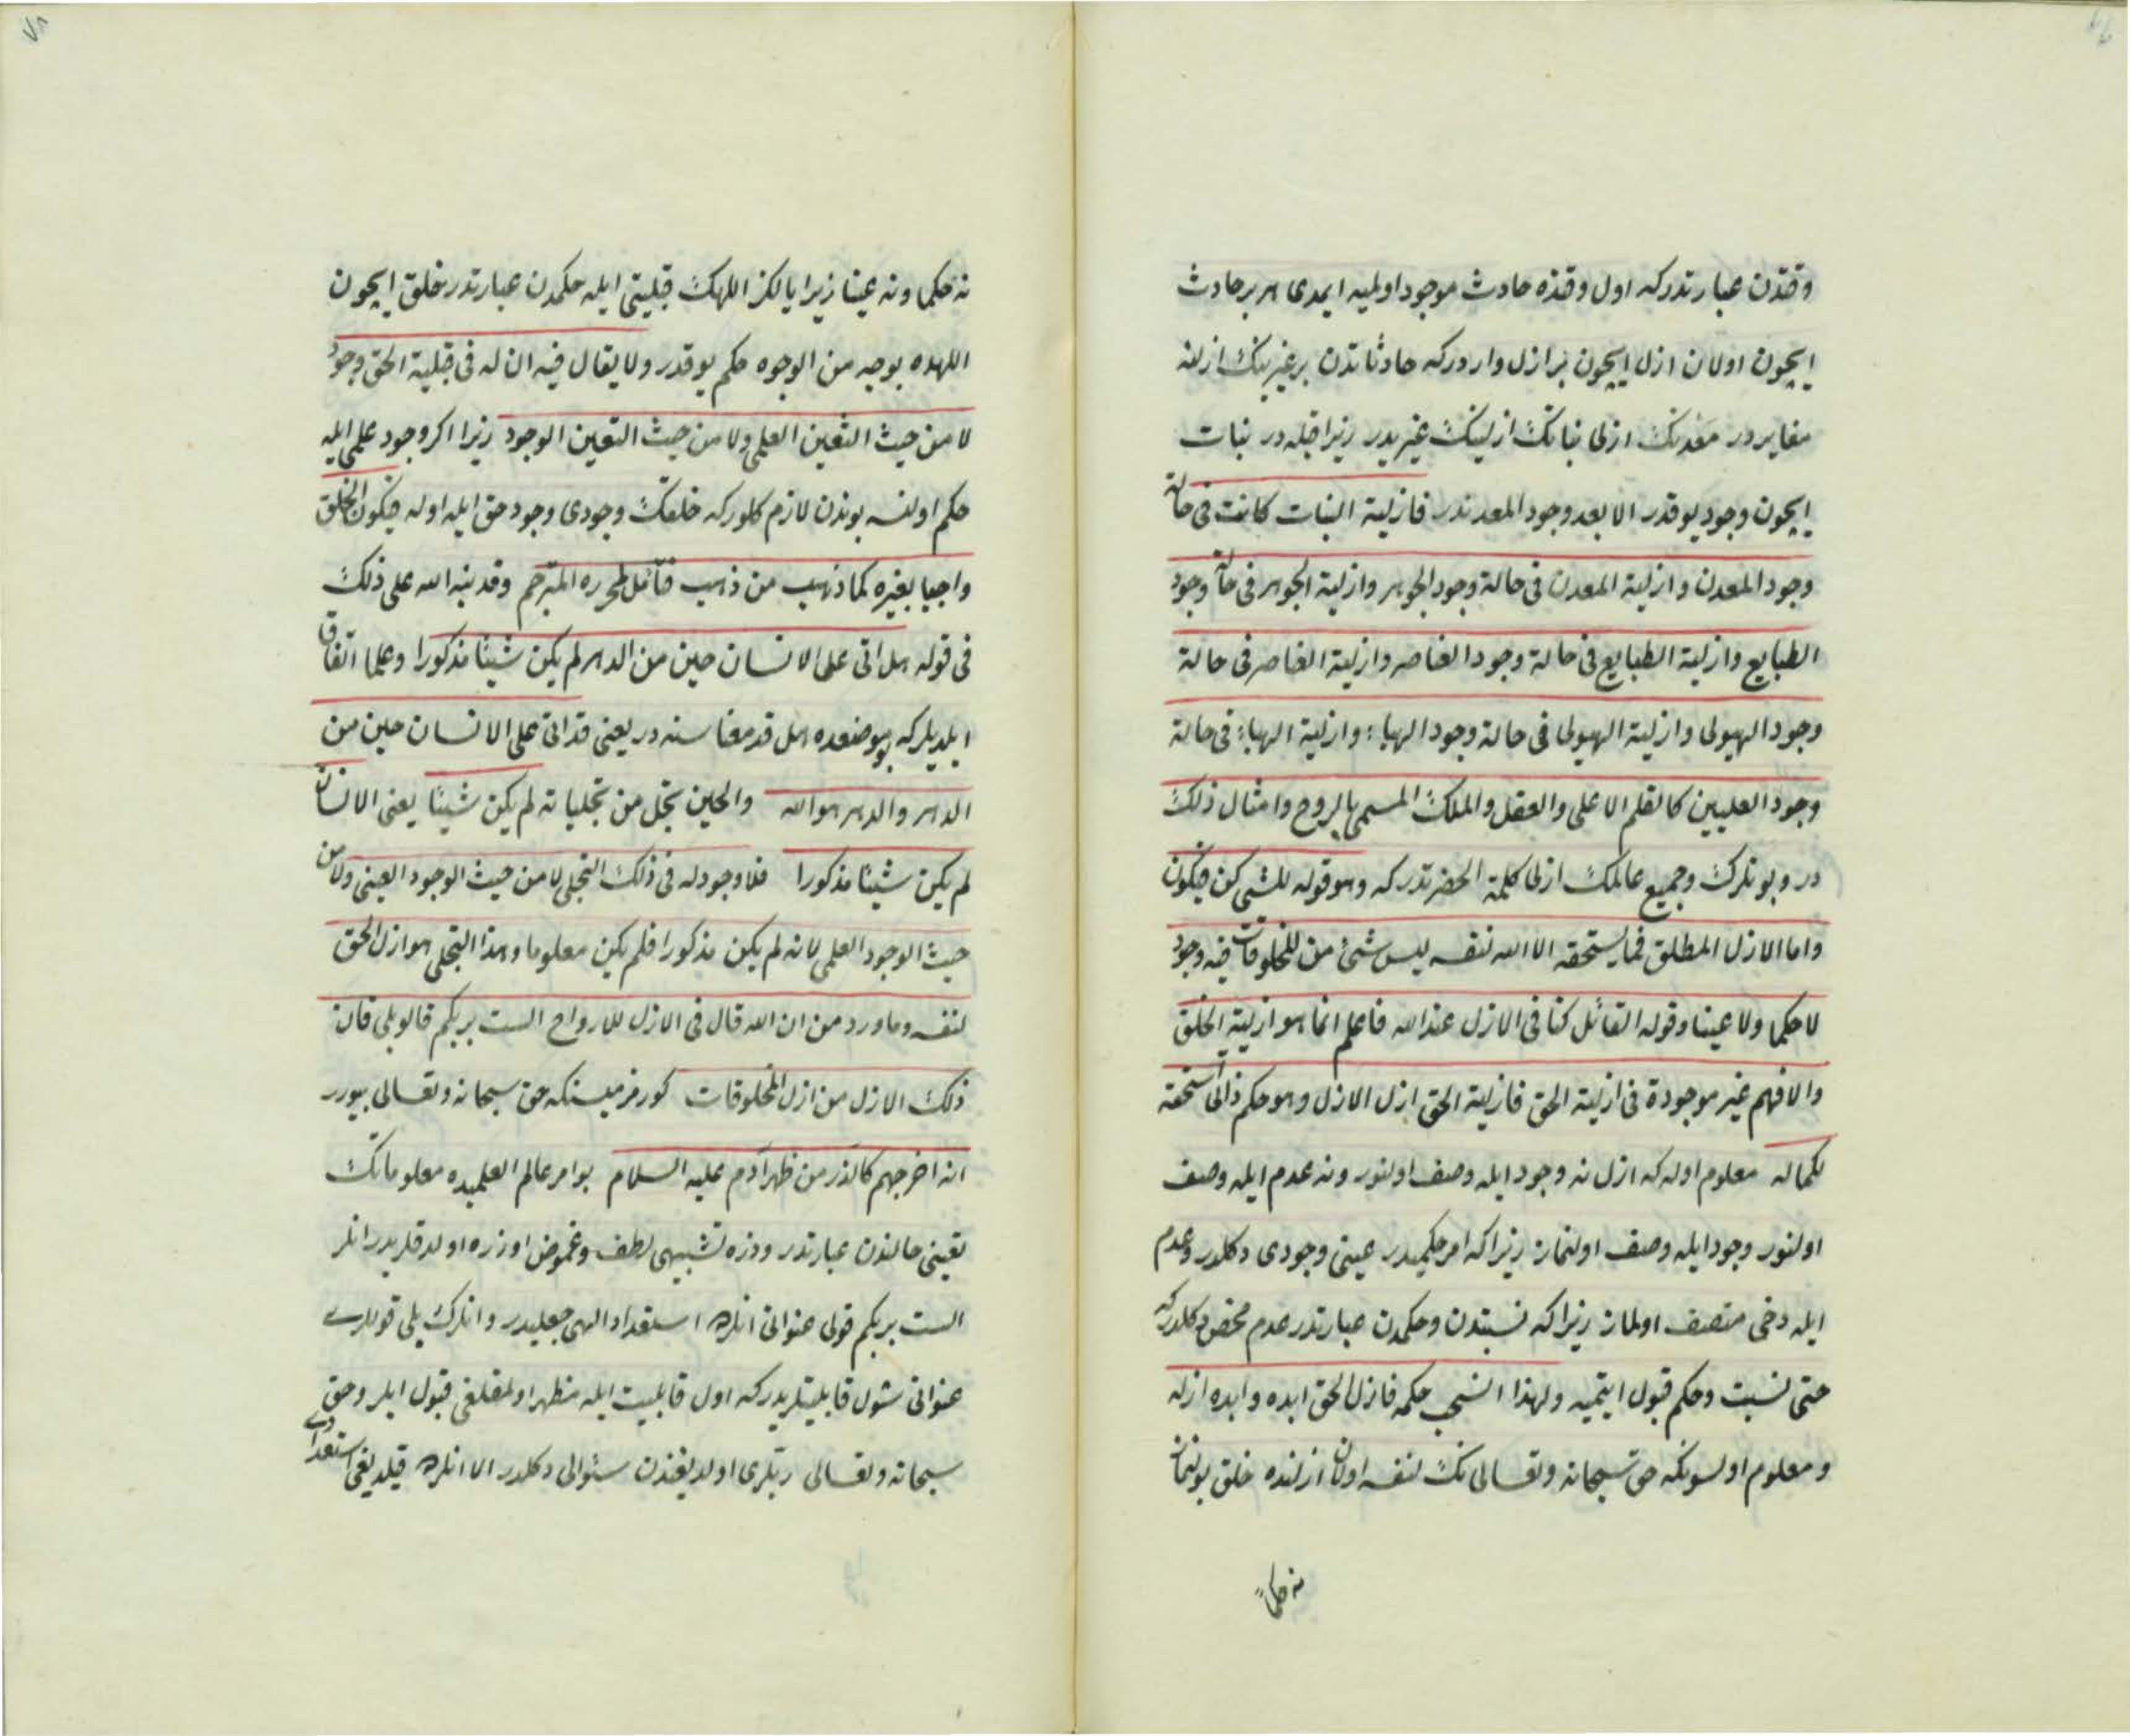 وقتدن عبارتدركه اول وقتده حادث موجود اولميه ايمدى هر بر حادث
ايچون اولان ازل ايچون بر ازل واردركه حادثاتدن بر غيرينك ازلنه
مغايردر معدنك ازلى نباتك ازلينك غيريدر زيرا قبله در نبات
ايچون وجود يوقدر الا بعد وجود المعدندر فازلية النبات كانت فى حالة
وجود المعدن وازلية المعدن فى حالة وجود الجوهر وازلية الجوهر فى حالة وجود
الطبايع وازلية الطبايع فى حالة وجود العناصر وازلية العناصر فى حالة
وجود الهيولى وازلية الهيولى فى حالة وجود الهباء وازلية الهباء فى حالة
وجود العليين كالقلم الاعلى والعقل والملك المسمى بالروح وامثال ذلك
در وبونلرك وجميع عالمك ازلى كلمة الحضرتدركه وهو قوله للشى كن فيكون
واما الازل المطلق فما يستحقه الا الله نفسه ليس شئ من المخلوقات فيه وجود
لا حكما ولا عينا وقوله القائل كنا فى الازل عند الله فاعلم انما هو ازلية الخلق
والا فهم غير موجودة فى ازلية الحق فازلية الحق ازل الازل وهو حكم ذاتى استحقه
لكماله معلوم اوله كه ازل نه وجود ايله وصف اولنور ونه عدم ايله وصف
اولنور وجود ايله وصف اولنماز زيراكه امر حكميدر عينى وجودى دكلدر وعدم
ايله دخى متصف اولماز زيراكه نسبتدن وحكمدن عبارتدر عدم محض دكلدركه
حتى نسبت وحكم قبول ايتميه ولهذا انسحب حكمه فازل الحق ابده وابده ازله
ومعلوم اولسونكه حق سبحانه وتعالى نك لنفسه اولان ازلنده خلق بولنماز
نه حكماً
نه حكما ونه عينا زيرا يالكز اللهك قبليتى ايله حكمدن عبارتدر خلق ايچون
اللهده بوجه من الوجوه حكم يوقدر ولا يقال فيه ان له فى قبلية الحق وجود
لا من حيث التعين العلمى ولا من حيث التعين الوجود زيرا اكر وجود علمى ايله
حكم اولنسه بوندن لازم كلوركه خلقك وجودى وجود حق ايله اوله فيكون الخلق
واجبا بغيره كما ذهب من ذهب فتأمل لمحرره المترجم وقد نبه الله على ذلك
فى قوله هل اتى على الانسان حين من الدهر لم يكن شيئا مذكورا وعلما اتفاق
ايلديلركه بو موضعده هل قد معناسنه در يعنى قد اتى على الانسان حين من
الدهر والدهر هو الله والحين تجل من تجلياته لم يكن شيئا يعنى الانسان
لم يكن شيئا مذكورا فلا وجود له فى ذلك التجلى لا من حيث الوجود العينى ولا من
حيث الوجود العلمى لانه لم يكن مذكورا فلم يكن معلوما وهذا التجلى هو ازل الحق
لنفسه وما ورد من ان الله قال فى الازل للارواح الست بربكم قالو بلى فان
ذلك الازل من ازل المخلوقات كورمزميسنكه حق سبحانه وتعالى بيورر
انه اخرجهم كالذر من ظهر آدم عليه السلام بو امر عالم العلميده معلوماتك
تعينى حالندن عبارتدر وذره تشبيهى لطف وغموض اوزره اولدقلريدر انلر
الست بربكم قولى عنوانى انلره استعداد الهى جعليدر وانلرك بلى قوللرى
عنوانى شول قابليتلريدركه اول قابليت ايله مظهر اولمقلغى قبول ايلر وحق
سبحانه وتعالى ربلرى اولديغندن سئوالى دكلدر الا انلره قيلديغى استعدادى